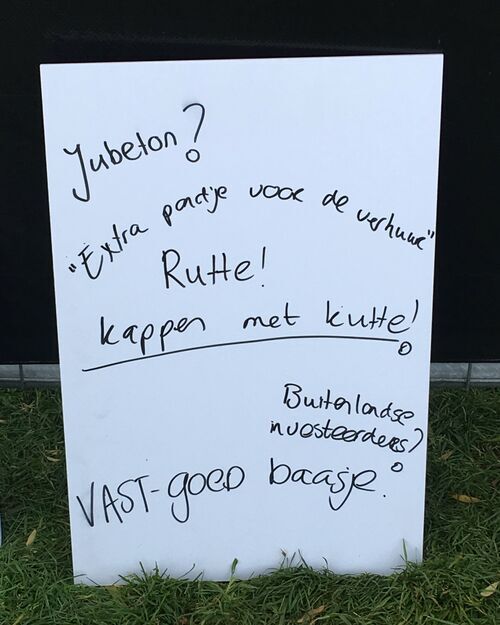 Jubelton?
"Extra pandje voor de verhuur"
Rutte!
kappen met kutte!
Buitenlandse
investeerders?
VAST-goed baasje.